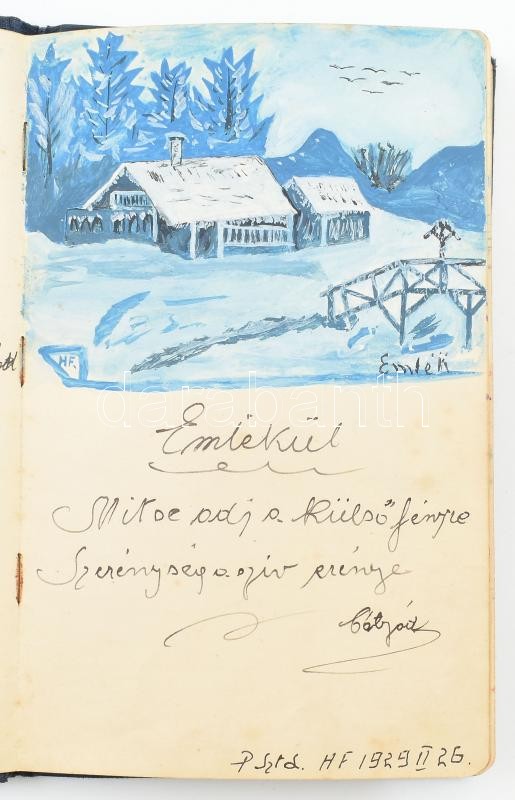 HF.
Emlék
Emlékül
Mit se adj a külső fényre
Szerénység a szív erénye
Bátyád
P. Sztd. HF 1929 II 26.
darabanth